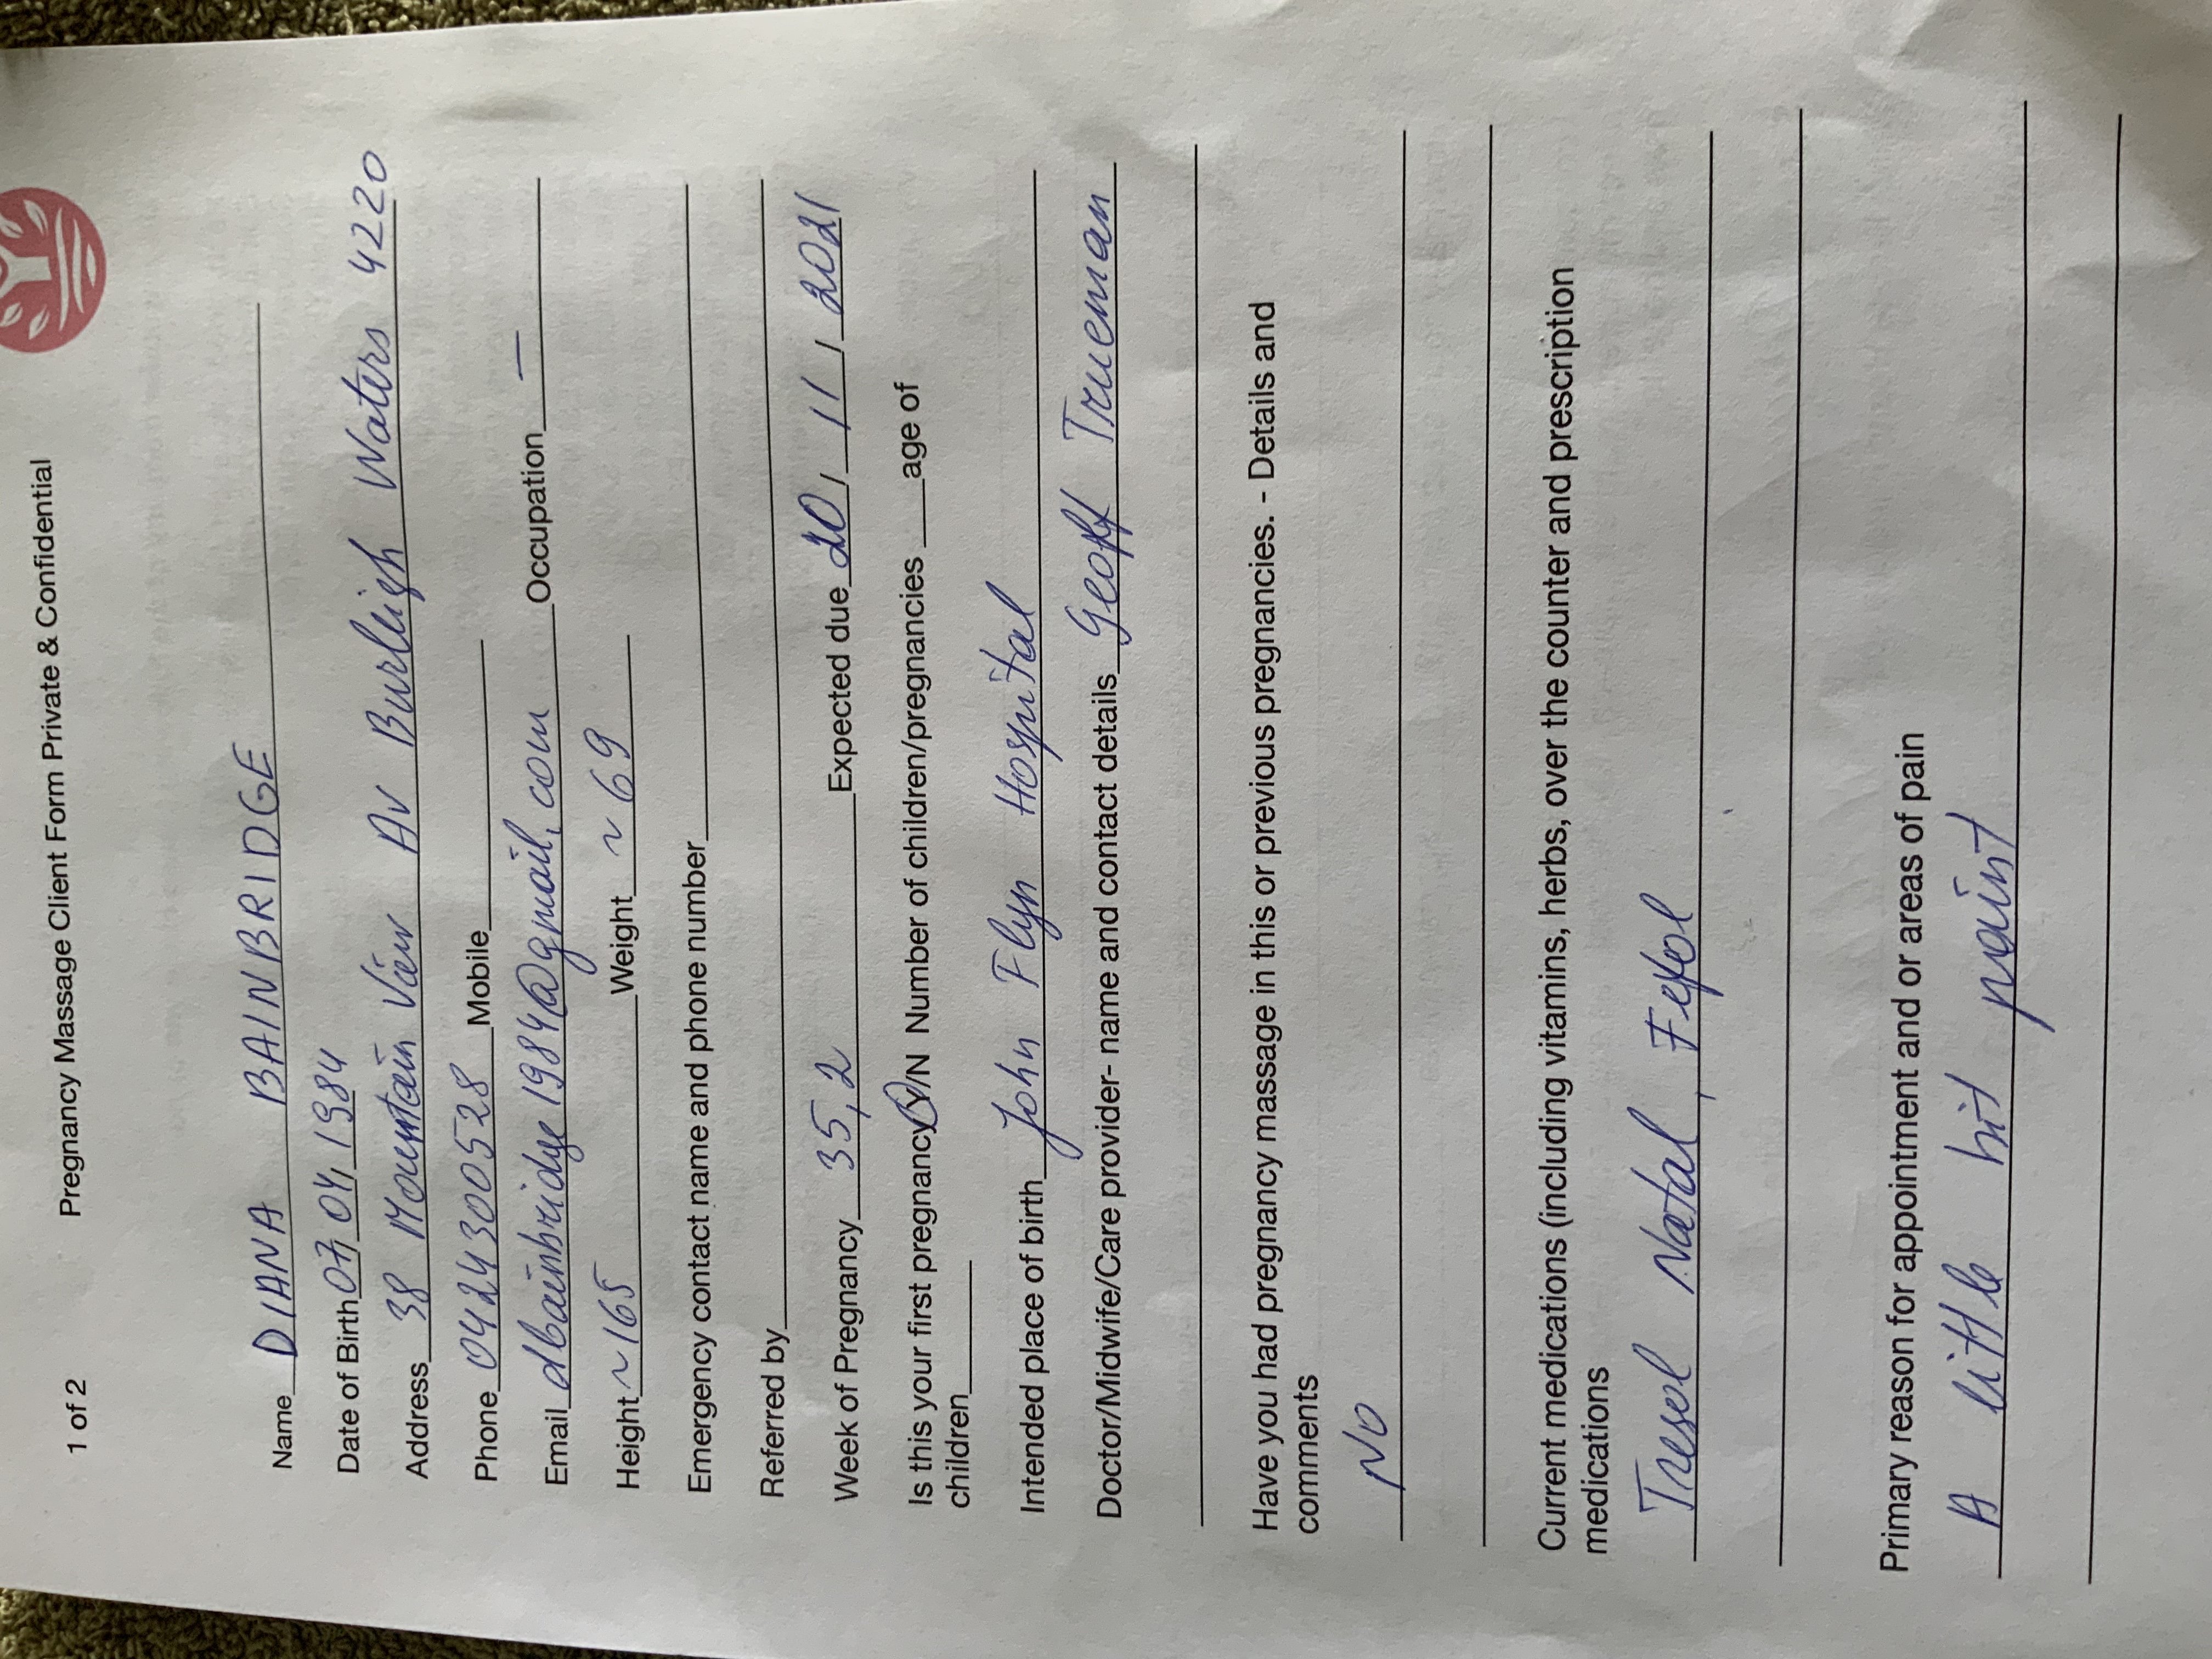 1 of 2 Pregnancy Massage Client Form Private & Confidential
Name DIANA BAINBRIDGE
Date of Birth 07, 04, 1984
Address 38 Mountain View Av Burleigh Waters 4220
Phone 0424300528 Mobile
Email dbainbridge1984@gmail.com Occupation —
Height ~165 Weight ~ 69
Emergency contact name and phone number
Referred by
Week of Pregnancy 35,2 Expected due 20, 11, 2021
Is this your first pregnancy Y/N Number of children/pregnancies ___age of
children
Intended place of birth John Flyn Hospital
Doctor/Midwife/Care provider- name and contact details Geoff Trueman
Have you had pregnancy massage in this or previous pregnancies. - Details and
comments
NO
Current medications (including vitamins, herbs, over the counter and prescription
medications
Tresol Natal, Fefol
Primary reason for appointment and or areas of pain
A little bit paint